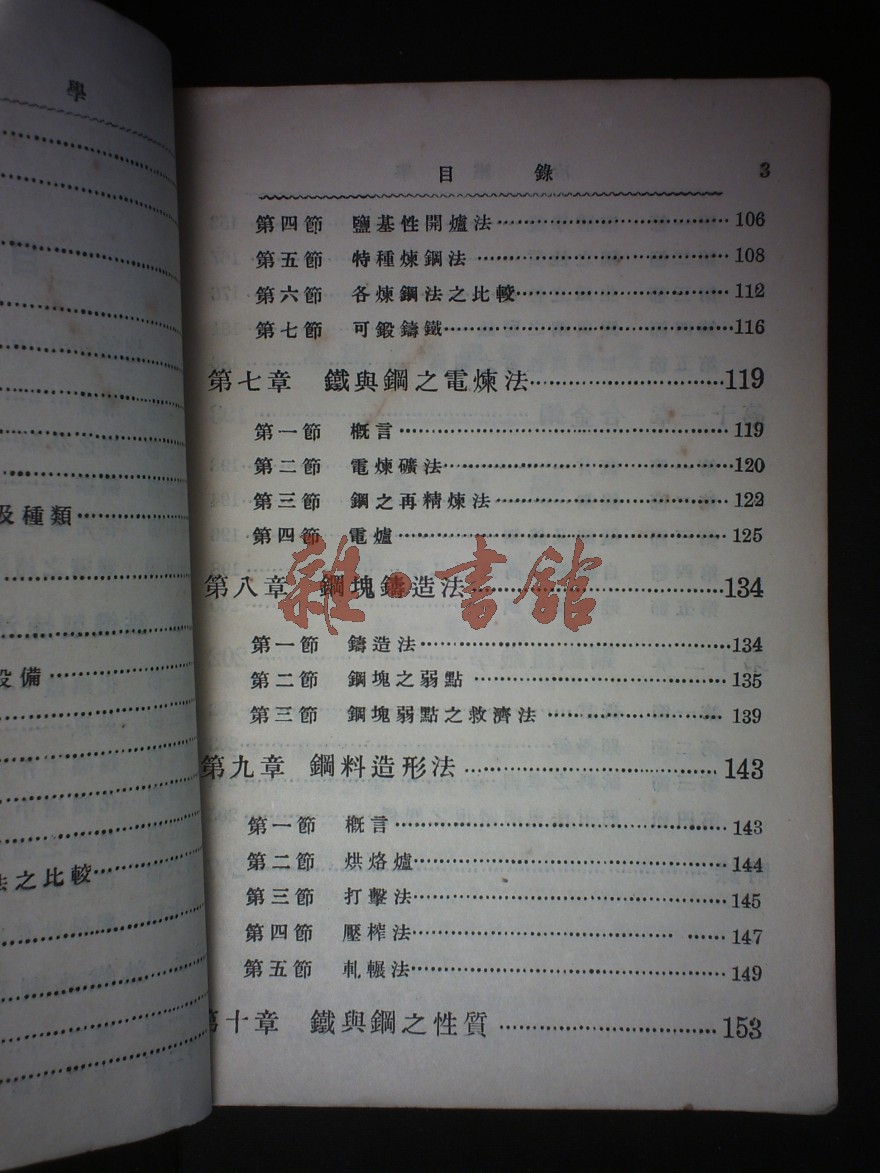 學
及種類
設備
法之比較
目錄 3
第四節 鹽基性開爐法 106
第五節 特種煉鋼法 108
第六節 各煉鋼法之比較 112
第七節 可鍛鑄鐵 116
第七章 鐵與鋼之電煉法 119
第一節 概言 119
第二節 電煉礦法 120
第三節 鋼之再精煉法 122
第四節 電爐 125
第八章 鋼塊鑄造法 134
第一節 鑄造法 134
第二節 鋼塊之弱點 135
第三節 鋼塊弱點之救濟法 139
第九章 鋼料造形法 143
第一節 概言 143
第二節 烘烙爐 144
第三節 打擊法 145
第四節 壓榨法 147
第五節 軋輾法 149
第十章 鐵與鋼之性質 153
雜·書館